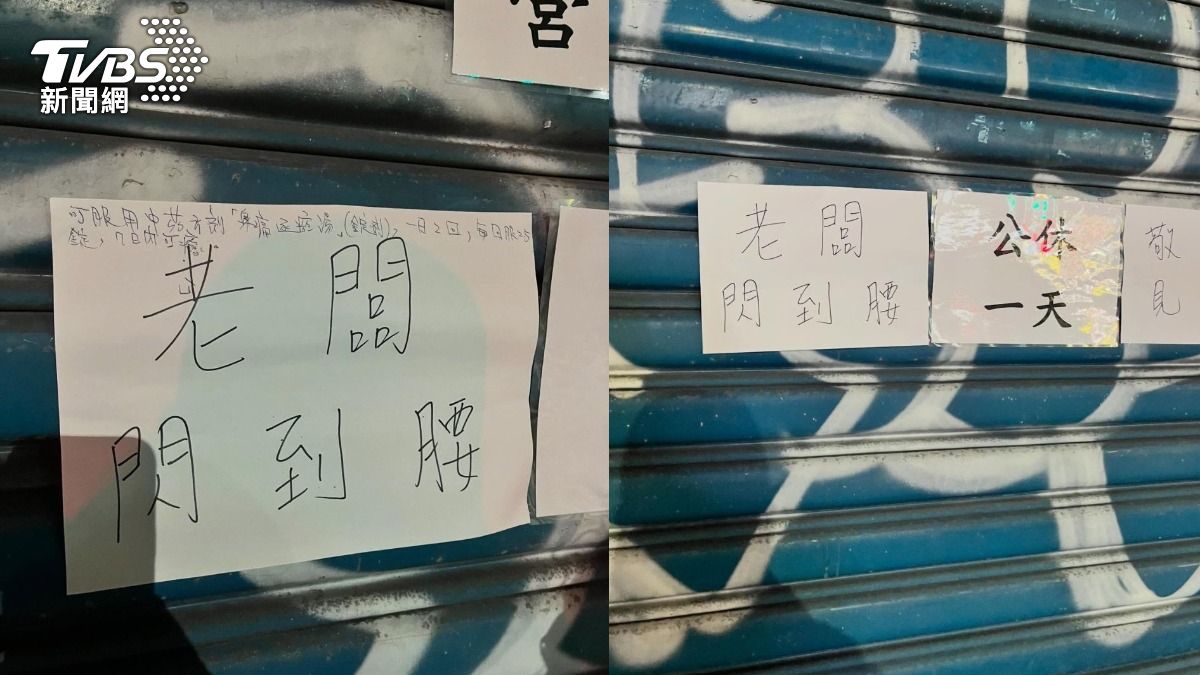 TVBS
新聞網
營
可服用中药方剤「身痛逐瘀湯」(錠剤),一日2回,每日服25
錠,7日即可癒。
老闆
閃到腰
老闆
閃到腰
公休
一天
敬
見